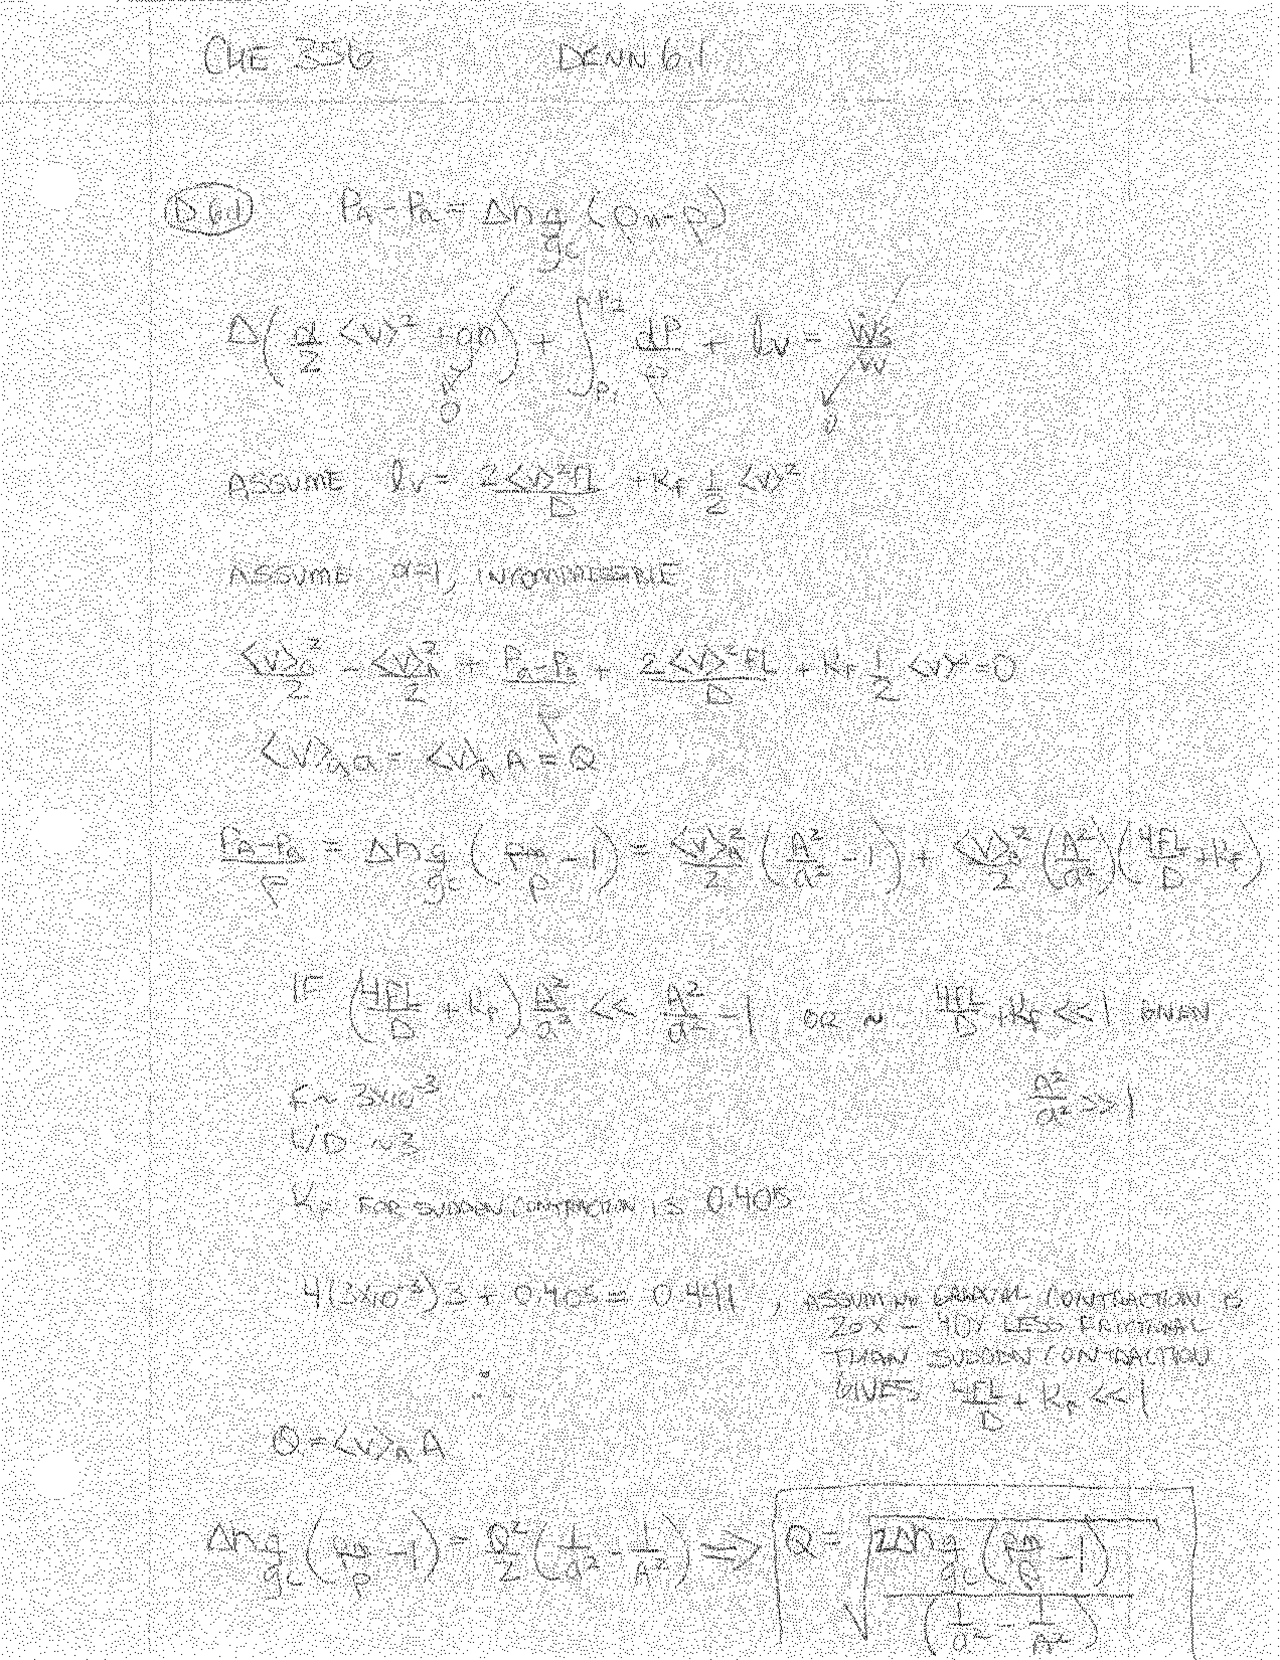 CHE 356 DENN 6.1 1
D 6.1 P_A - P_a = Δh g/g_c (ρ_m - ρ)
Δ(α/2 <v>² + gh) + ∫_{P_1}^{P_2} dP/ρ + l_v = Ẇs/w
0 0
ASSUME l_v = 2<v>²fL/D + K_f 1/2 <v>²
ASSUME α=1, INCOMPRESSIBLE
<v>_a²/2 - <v>_A²/2 + (P_a - P_A)/ρ + 2<v>²fL/D + K_f 1/2 <v>² = 0
<v>_a a = <v>_A A = Q
(P_A - P_a)/ρ = Δh g/g_c (ρ_m/ρ - 1) = <v>_A²/2 (A²/a² - 1) + <v>_A²/2 (A²/a²)(4fL/D + K_f)
IF (4fL/D + K_f) A²/a² << A²/a² - 1 OR ~ 4fL/D + K_f << 1 GIVEN
f ~ 3x10^-3 A²/a² >> 1
L/D ~ 3
K_f FOR SUDDEN CONTRACTION IS 0.405
4(3x10^-3)3 + 0.405 = 0.441 , ASSUMING GRADUAL CONTRACTION IS
20X - 40X LESS FRICTIONAL
THAN SUDDEN CONTRACTION
GIVES 4fL/D + K_f << 1
∴
Q = <v>_A A
Δh g/g_c (ρ_m/ρ - 1) = Q²/2 (1/a² - 1/A²) ⇒ Q = √(2Δh g/g_c (ρ_m/ρ - 1) / (1/a² - 1/A²))